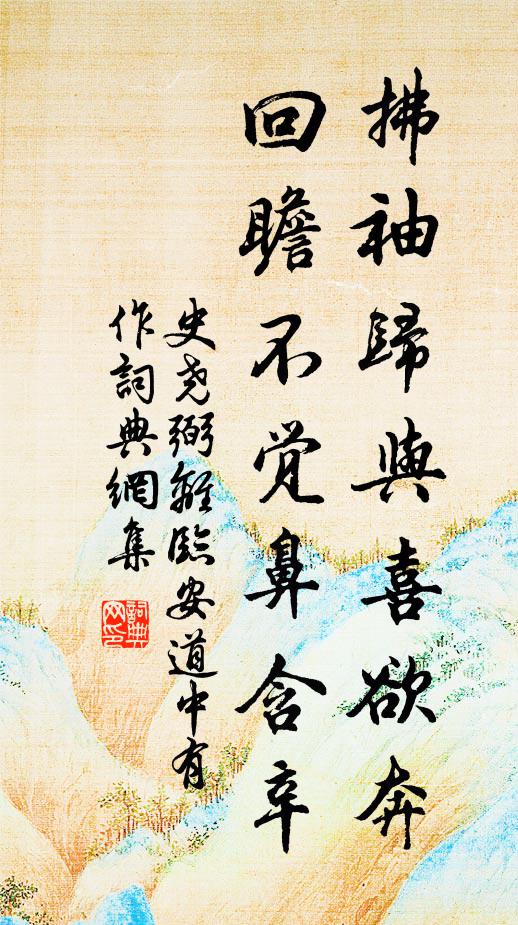 拂袖歸與喜欲奔
回瞻不觉鼻含辛
史尧弼離臨安道中有
作詞典網集
詞典
网印